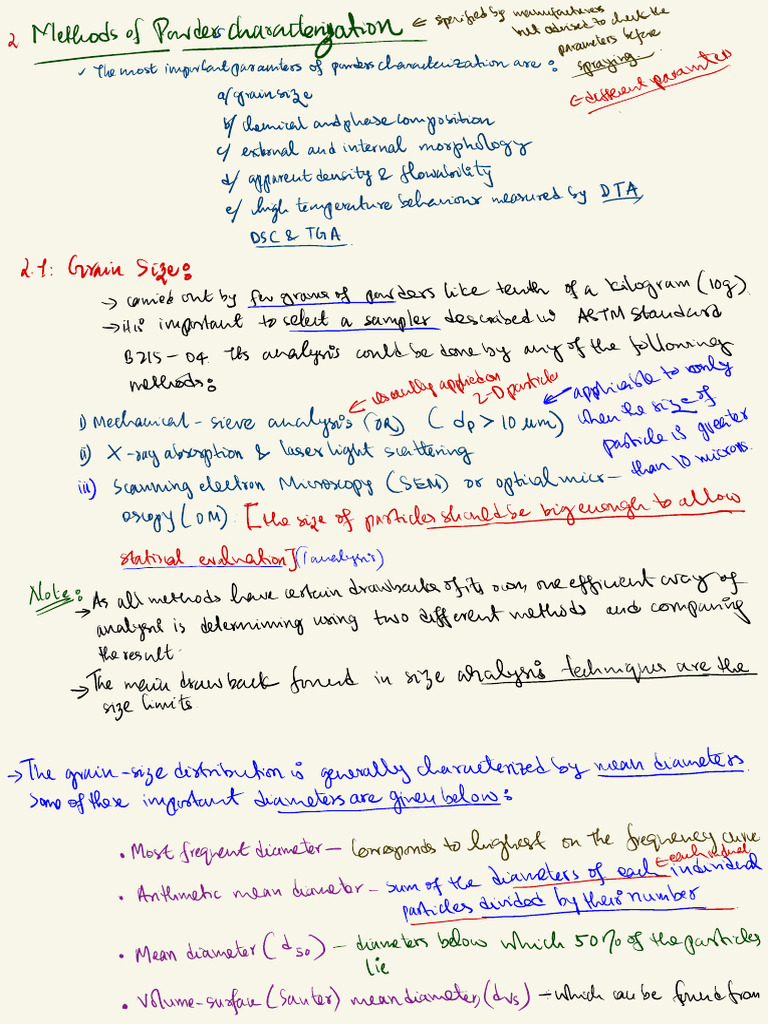 2 Methods of Powders characterization ← specified by manufacturers
but advised to check the
parameters before
spraying
✓ The most important paramters of powders characterization are:
← different paramters
a/ grain size
b/ chemical and phase composition
c/ external and internal morphology
d/ apparent density & flowability
e/ high temperature behaviour measured by DTA,
DSC & TGA
2.1: Grain Size:
→ carried out by few grams of powders like tenth of a kilogram (10g)
→ it is important to select a sampler described in ASTM standard
B215-04. Its analysis could be done by any of the following
methods:
← usually applied on
2-D particle
i) Mechanical-sieve analysis (OR) (dp > 10 um)
← applicable to only
when the size of
particle is greater
than 10 microns.
ii) X-ray absorption & laser light scattering
iii) Scanning electron Microscopy (SEM) or optical micr-
oscopy (OM). [the size of particles should be big enough to allow
statical evaluation] (analysis)
Note:
→ As all methods have certain drawbacks of its own, one efficient way of
analysis is determining using two different methods and comparing
the result.
→ The main drawback found in size analysis techniques are the
size limits.
→ The grain-size distribution is generally characterized by mean diameters.
Some of these important diameters are given below:
• Most frequent diameter - corresponds to highest on the frequency curve
• Arithmetic mean diameter - sum of the diameters of each individual
particles divided by their number
• Mean diameter (d50) - diameters below which 50% of the particles
lie
• Volume-surface (Sauter) mean diameter, (dvs) - which can be found from